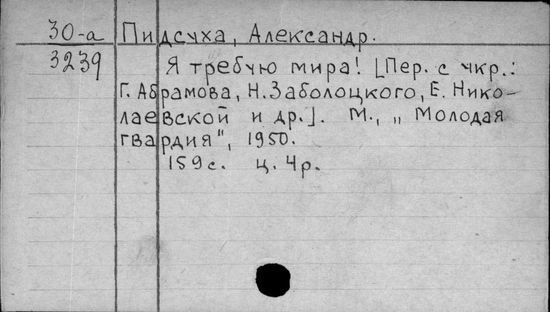 30-а Пидсуха, Александр.
3239 Я требую мира! [Пер. с укр.:
Г. Абрамова, Н. Заболоцкого, Е. Нико-
лаевской и др.]. М., „Молодая
гвардия", 1950.
159с. ц. 4р.